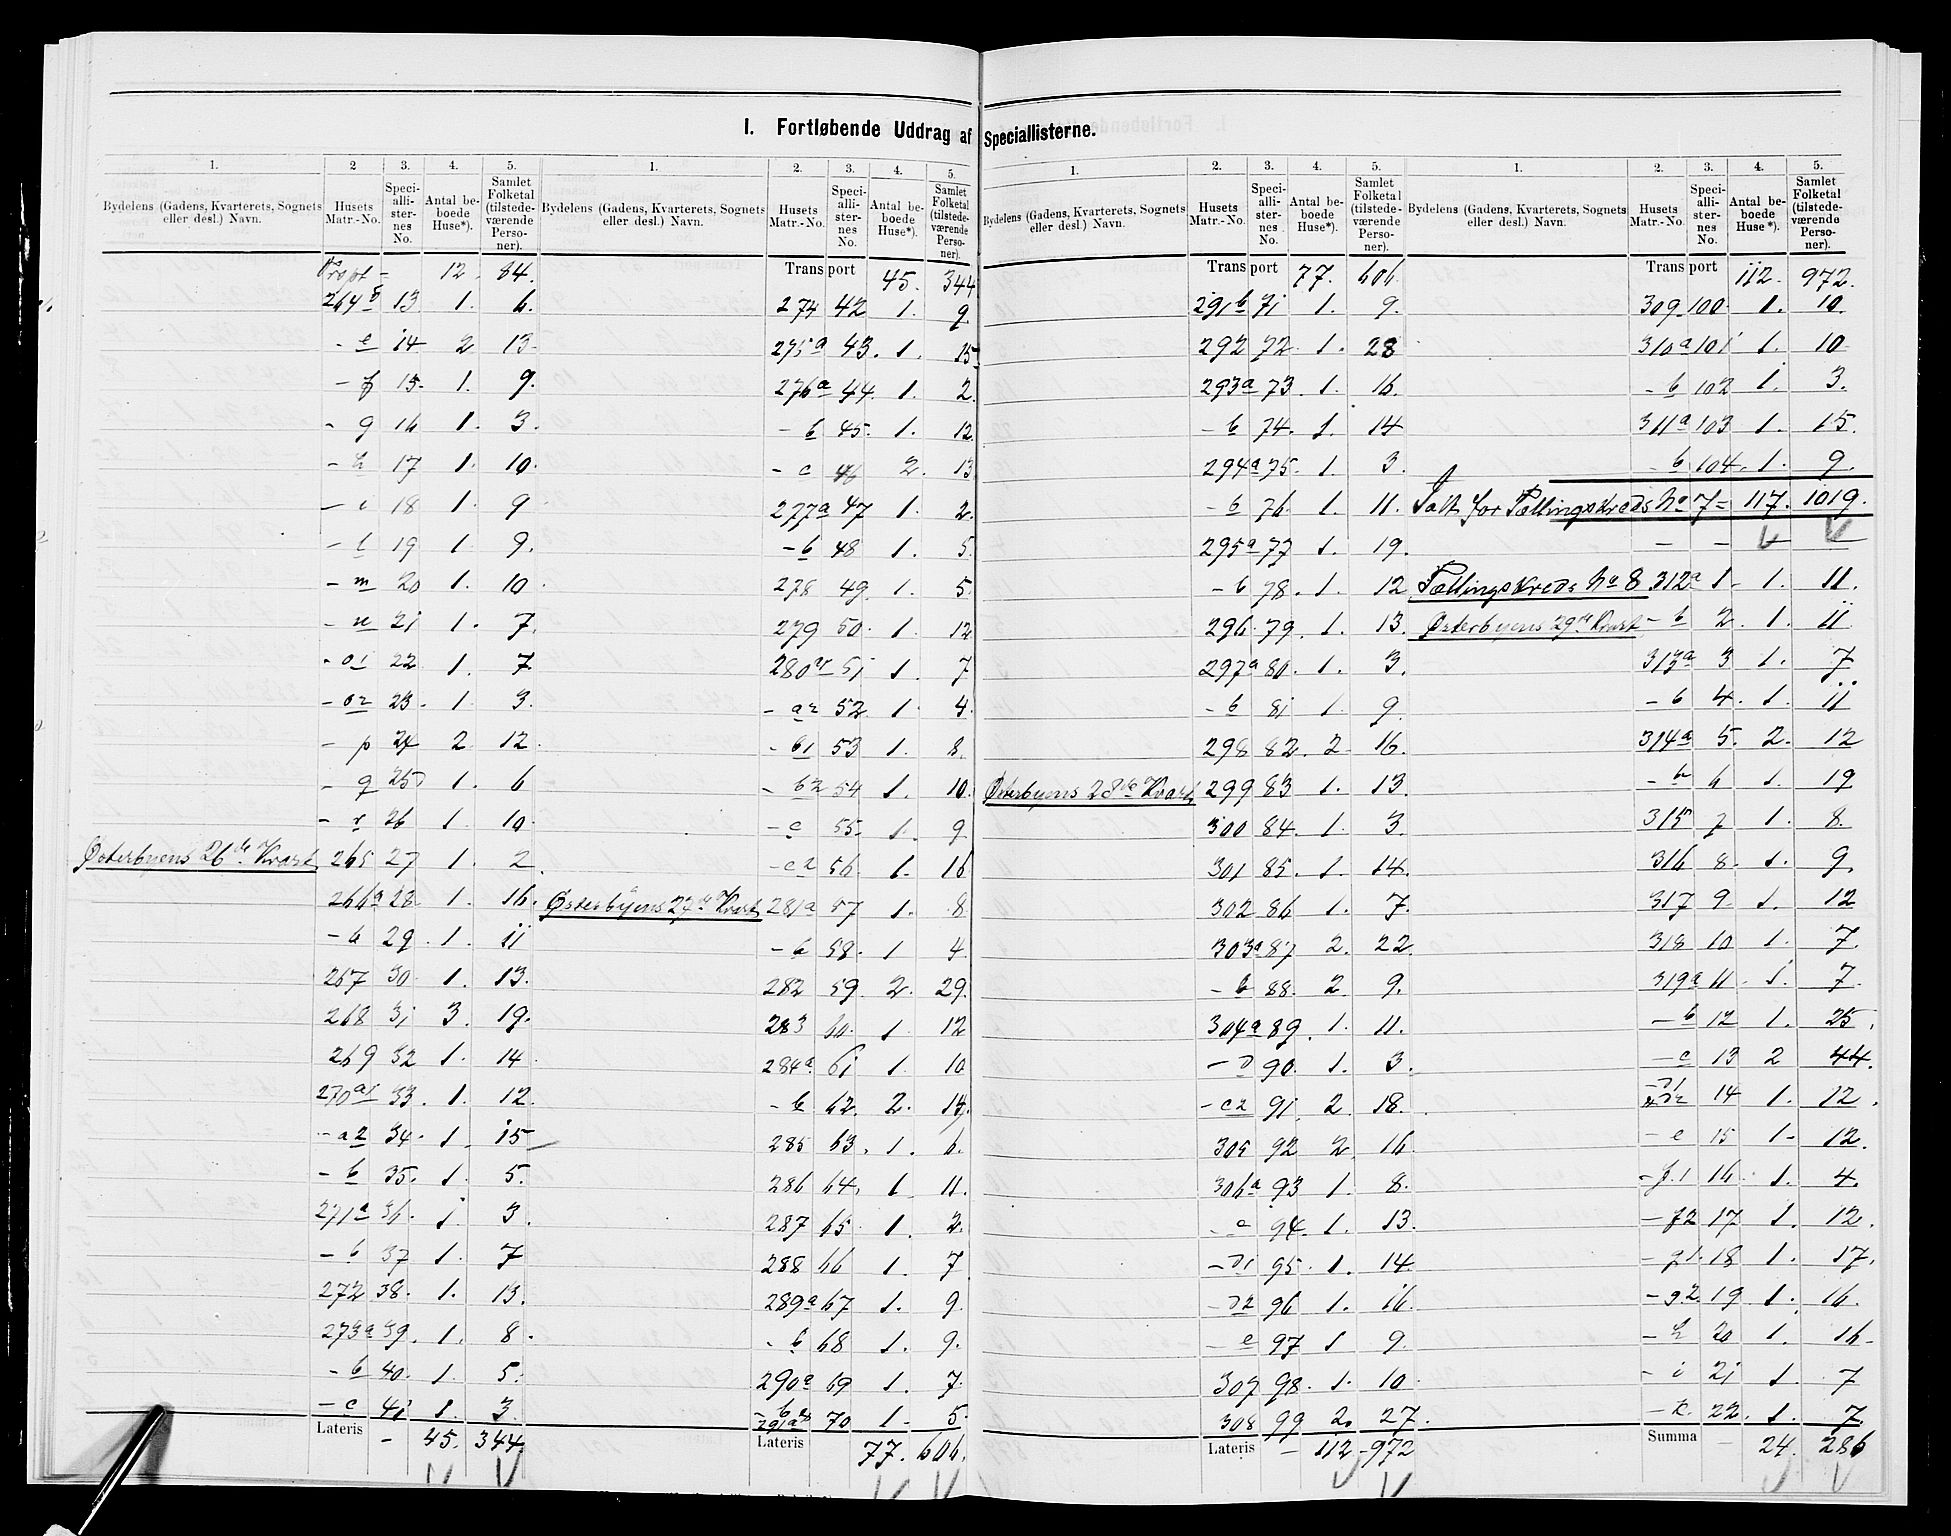 I. Fortløbende Uddrag af Speciallisterne.
1. 2 3. 4. 5.
Bydelens (Gadens, Kvarterets, Sognets eller desl.) Navn. Husets Matr.-No. Speci-alli-ster-nes No. Antal be-boede Huse*). Samlet Folketal (tilstede-værende Perso-ner).
Trspt - 12. 84.
264 13 1. 6.
- e 14 2 13.
- f 15. 1. 9.
- g 16 1. 3.
- h 17 1. 10.
- i 18 1. 9
- l 19 1 9.
- m 20 1. 10.
- n 21 1. 7.
- o1 22 1. 7
- o2 23. 1. 3.
- p 24 2. 12.
- q 25 1. 6
- r 26 1. 10.
Østerbyens 26de Kvart. 265 27 1. 2.
266a 28 1. 16.
- b 29. 1. 11
267 30. 1. 13.
268 31 3. 19.
269 32 1. 14.
270a1 33. 1. 12.
- a2 34. 1. 15
- b 35. 1. 5.
271a 36. 1 3.
- b 37 1. 7
272 38. 1. 13.
273a 39. 1. 8.
- b 40. 1. 5.
- c 41 1. 3.
Lateris - 45. 344
1. 2. 3. 4. 5.
Bydelens (Gadens, Kvarterets, Sognets eller desl.) Navn. Husets Matr.-No. Speci-alli-ster-nes No. Antal be-boede Huse*). Samlet Folketal (tilstede-værende Perso-ner).
Transport 45. 344
274 42 1. 9
275a 43. 1. 15
276a 44. 1. 2.
- b 45. 1. 12.
- c 46 2. 13
277a 47 1. 2.
- b 48 1. 5.
278 49. 1. 5.
279 50. 1. 12
280 51 1. 7
- a2 52 1. 4.
- b1 53 1. 8.
- b2 54 1. 10.
- c 55. 1. 9
- c2 56. 1. 16
Østerbyens 27de Kvart 281a 57 1. 8
- b 58. 1 4.
282 59 2. 29.
283 60. 1. 12
284a 61 1. 10
- b 62. 2. 14.
285 63. 1. 6.
286 64. 1 11.
287 65. 1. 2.
288 66 1. 7
289a 67 1. 9
- b 68 1. 9.
290a 69 1. 7.
291a 70 1. 5.
Lateris 77. 606.
1. 2. 3. 4. 5.
Bydelens (Gadens, Kvarterets, Sognets eller desl.) Navn. Husets Matr.-No. Speci-alli-ster-nes No. Antal be-boede Huse*). Samlet Folketal (tilstede-værende Perso-ner).
Transport 77. 606.
291b 71 1. 9.
292 72. 1. 28
293a 73 1. 16.
- b 74. 1. 14
294a 75. 1. 3.
- b 76. 1. 11.
295a 77 1. 19.
- b 78. 1. 12
296. 79. 1. 13.
297a 80. 1. 3.
- b 81 1. 9
298 82. 2 16.
Østerbyens 28de Kvart 299 83 1. 13.
300 84. 1. 3.
301 85. 1. 14.
302 86 1. 7.
303a 87 2. 22.
- b 88. 2. 9.
304a 89. 1. 11.
- D 90. 1. 3.
- c2 91. 2. 18.
305 92 2. 16
306a 93 1. 8.
- c 94. 1. 13.
- D1 95. 1. 14.
- D2 96 1. 16.
- e 97 1 9.
307 98. 1. 10.
308 99 2. 27.
Lateris - 112 - 972
1. 2. 3. 4. 5.
Bydelens (Gadens, Kvarterets, Sognets eller desl.) Navn. Husets Matr.-No. Speci-alli-ster-nes No. Antal be-boede Huse*). Samlet Folketal (tilstede-værende Perso-ner).
Transport 112. 972.
309 100. 1. 10.
310a 101 1. 10
- b 102 1. 3.
311a 103 1. 15.
- b 104. 1. 9.
Ialt for Tællingskreds No 7 - 117. 1019.
Tællingskreds No 8 312a 1 - 1. 11.
Østerbyens 29de Kvart - b 2. 1. 11
313a 3 1. 7
- b 4. 1. 11
314a 5. 2. 12
- b 6 1. 19
315 7 1. 8.
316 8. 1. 9.
317 9 1. 12
318 10 1. 7.
319a 11. 1. 7.
- b 12 1. 25.
- c 13 2 44.
14 1. 12.
- e 15 1 - 12.
- f.1 16. 1. 4.
- f2 17 1. 12.
- g1. 18 1. 17.
- g.2. 19 1. 16.
- h 20 1. 16
- i 21 1. 7
- k. 22. 1. 7.
Summa - 24. 286